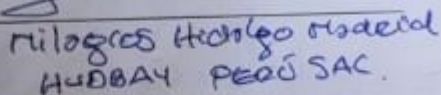 Milagros Hidalgo Madrid
HUDBAY PERÚ SAC.